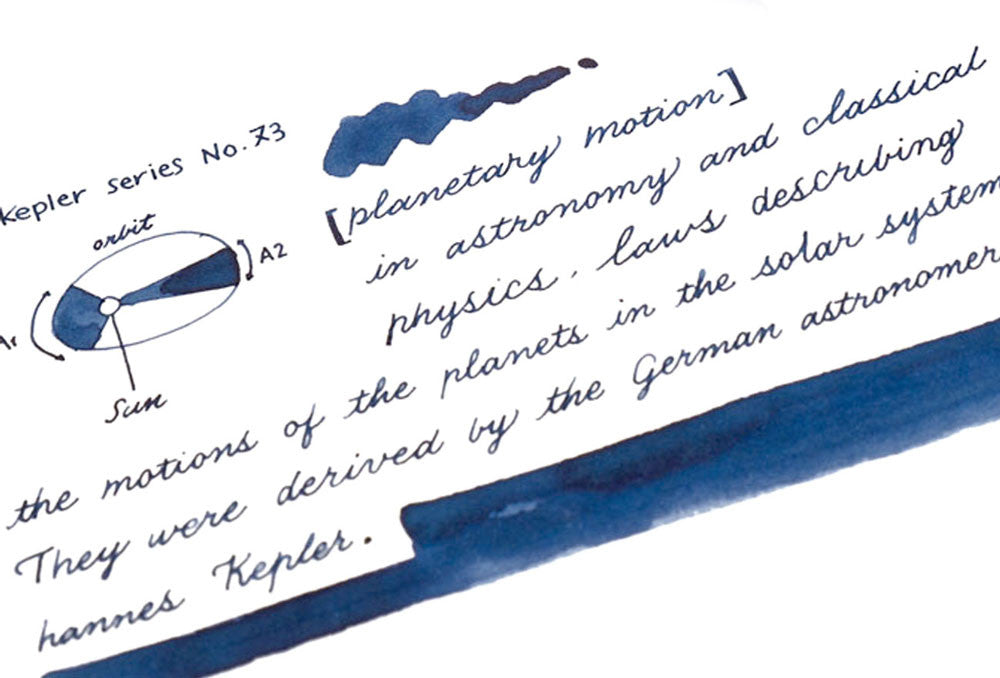 Kepler series No.73
orbit
A2
A1
Sun
[planetary motion]
in astronomy and classical
physics, laws describing
the motions of the planets in the solar system
They were derived by the German astronomer
hannes Kepler.